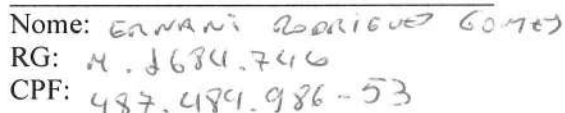 Nome: ERNANI RODRIGUES GOMES
RG: M.1684.746
CPF: 487.484.986-53